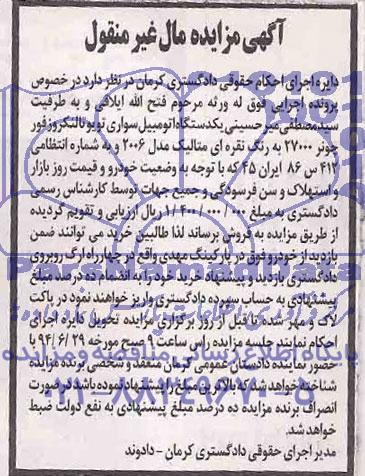 آگهی مزایده مال غیر منقول
دایره اجرای احکام حقوقی دادگستری کرمان در نظر دارد در خصوص
پرونده اجرایی فوق له ورثه مرحوم فتح الله ایلاقی و به طرفیت
سیدمصطفی میرحسینی یکدستگاه اتومبیل سواری تویوتالندکروزفور
چونر ۲۷۰۰۰ به رنگ نقره ای متالیک مدل ۲۰۰۶ و به شماره انتظامی
۴۱۳ س ۸۶ ایران ۴۵ که با توجه به وضعیت خودرو و قیمت روز بازار
و استهلاک و سن فرسودگی و جمیع جهات توسط کارشناس رسمی
دادگستری به مبلغ ۱/۴۰۰/۰۰۰/۰۰۰ ریال ارزیابی و تقویم گردیده
از طریق مزایده به فروش برساند لذا طالبین خرید می توانند ضمن
بازدید از خودرو فوق در پارکینگ مهدی واقع در چهارراه ارگ روبروی
دادگستری بازدید و پیشنهاد خرید خود را به انضمام ده درصد مبلغ
پیشنهادی به حساب سپرده دادگستری واریز خواهند نمود در پاکت
لاک و مهر شده تا قبل از روز برگزاری مزایده تحویل دایره اجرای
احکام نمایند جلسه مزایده راس ساعت ۹ صبح مورخه ۹۴/۶/۲۹ با
حضور نماینده دادستان عمومی کرمان منعقد و شخصی برنده مزایده
شناخته خواهد شد که بالاترین مبلغ را پیشنهاد نموده باشد در صورت
انصراف برنده مزایده ده درصد مبلغ پیشنهادی به نفع دولت ضبط
خواهد شد.
مدیر اجرای احکام حقوقی دادگستری کرمان - دادوند
پایگاه اطلاع رسانی مناقصه و مزایده
۰۲۱-۸۸۳۴۹۶۷۰-۵